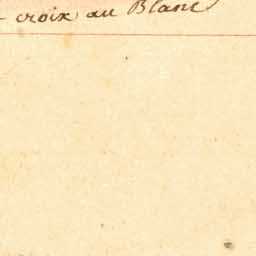 - croix au Blanc